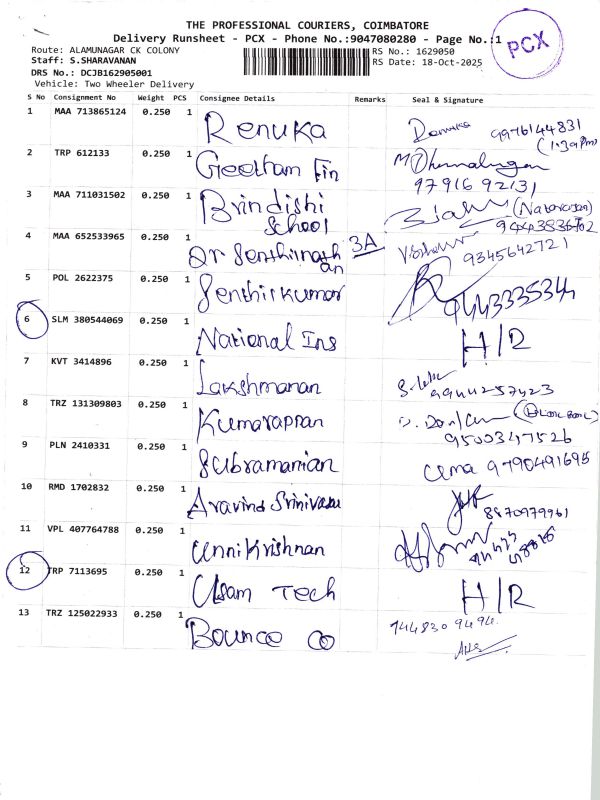 THE PROFESSIONAL COURIERS, COIMBATORE
Delivery Runsheet - PCX - Phone No.:9047080280 - Page No.:1
PCX
Route: ALAMUNAGAR CK COLONY
RS No.: 1629050
Staff: S.SHARAVANAN
RS Date: 18-Oct-2025
DRS No.: DCJB162905001
Vehicle: Two Wheeler Delivery
S No Consignment No Weight PCS Consignee Details Remarks Seal & Signature
1 MAA 713865124 0.250 1 Renuka 9976144831
(1:30 Pm)
2 TRP 612133 0.250 1 Geetham Fin
97916 92131
3 MAA 711031502 0.250 1 Brindishi School (Natarajan)
4 MAA 652533965 0.250 1 Dr Senthilnathan 3A 9345642721
5 POL 2622375 0.250 1 Senthilkumar 9443335344
6 SLM 380544069 0.250 1 National Ins H/R
7 KVT 3414896 0.250 1 Lakshmanan 9944257423
8 TRZ 131309803 0.250 1 Kumarappan
9500347526
9 PLN 2410331 0.250 1 Subramanian Uma 9790491695
10 RMD 1702832 0.250 1 Aravind Srinivasan
8870979961
11 VPL 407764788 0.250 1 Unnikrishnan
12 TRP 7113695 0.250 1 Usam Tech H/R
13 TRZ 125022933 0.250 1 Bounce Co 744830 9494